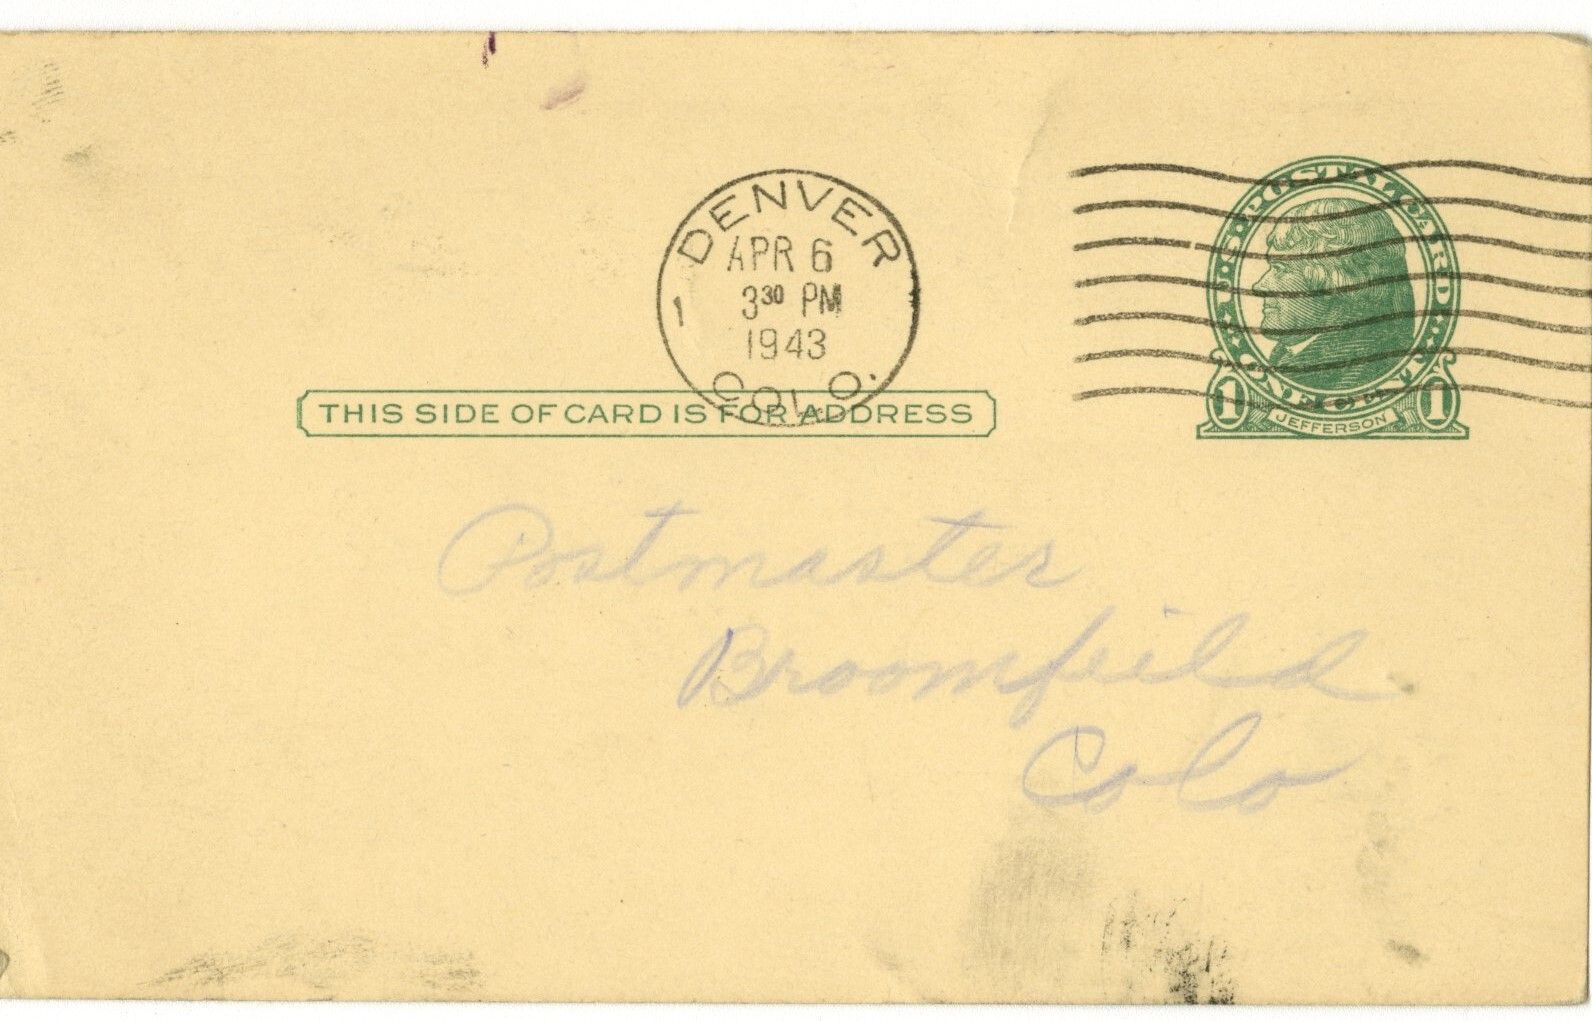 DENVER
APR 6
3 30 PM
1
1943
COLO.
U.S. POSTAL CARD
ONE CENT
1 JEFFERSON 1
THIS SIDE OF CARD IS FOR ADDRESS
Postmaster
Broomfeild
Colo